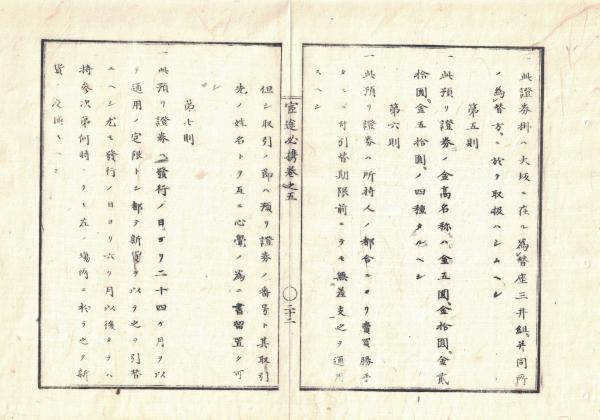 一此證券掛ハ大坂ニ在ル為替座三井組並同所
ノ為替方ニ於テ取扱ハシムヘシ
第五則
一此預リ證券ノ金高名称ハ金五圓、金拾圓、金貳
拾圓、金五拾圓、ノ四種タルヘシ
第六則
一此預リ證券ハ所持人ノ都合ニヨリ賣買勝手
タルヘク引替期限前ニテモ無差支之ヲ通用
スヘシ
官途必携巻之五
二十二
但シ取引ノ節ハ預リ證券ノ番号ト其取引
先ノ姓名トヲ互ニ心覺ノ為ニ書留置ク可
シ
第七則
一此預リ證券ハ發行ノ日ヨリ二十四ケ月ヲ以
テ通用ノ定限トシ都テ新貨ヲ以テ之ヲ引替
ユヘシ尤モ發行ノ日ヨリ六ケ月以後タラハ
持参次第何時ニテモ在ノ場所ニ於テ之ヲ新
貨